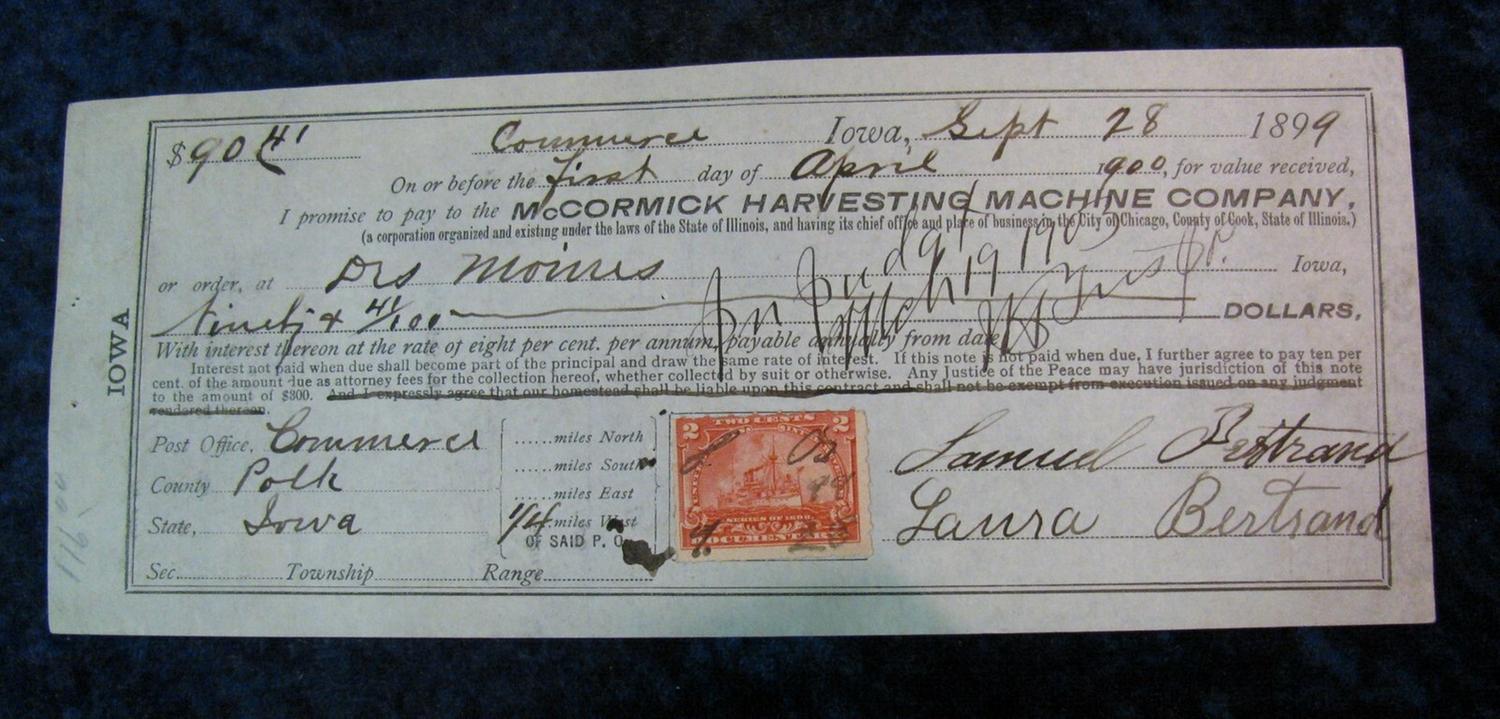 $90 41 Commerce Iowa, Sept 28 1899
On or before the first day of April 1900, for value received,
I promise to pay to the McCORMICK HARVESTING MACHINE COMPANY,
(a corporation organized and existing under the laws of the State of Illinois, and having its chief office and place of business in the City of Chicago, County of Cook, State of Illinois.)
or order, at Des Moines Iowa,
Ninety & 41/100 DOLLARS,
With interest thereon at the rate of eight per cent. per annum, payable annually from date
Interest not paid when due shall become part of the principal and draw the same rate of interest. If this note is not paid when due, I further agree to pay ten per
cent. of the amount due as attorney fees for the collection hereof, whether collected by suit or otherwise. Any Justice of the Peace may have jurisdiction of this note
to the amount of $300. And I expressly agree that our homestead shall be liable upon this contract and shall not be exempt from execution issued on any judgment
rendered thereon.
IOWA
Post Office, Commerce
County Polk
State, Iowa
Sec. Township Range
miles North
miles South
miles East
1/4 miles West
OF SAID P. O.
2 TWO CENTS 2
SERIES OF 1898
DOCUMENTARY
Samuel Bertrand
Laura Bertrand